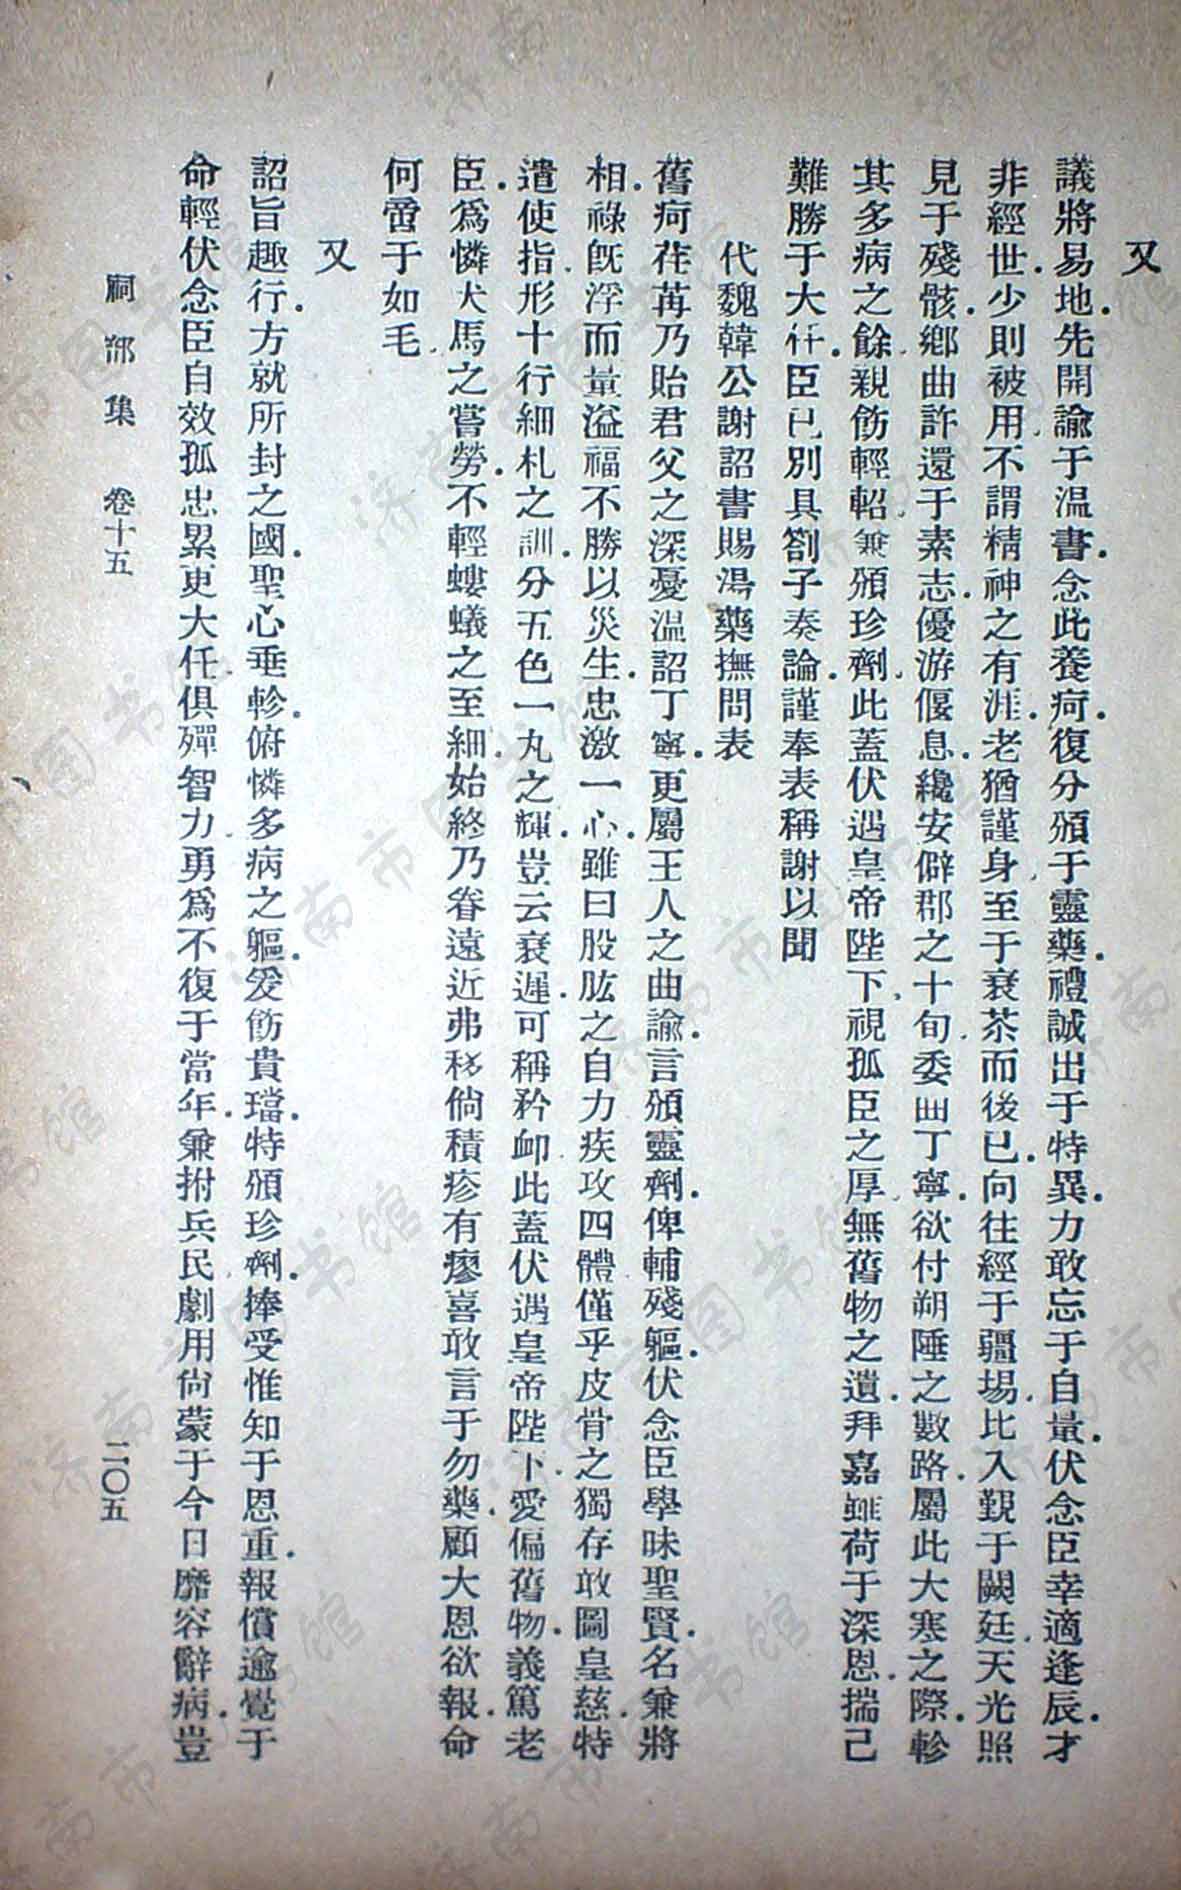 又
議將易地先開諭于温書念此養疴復分頒于靈藥禮誠出于特異力敢忘于自量伏念臣幸適逢辰才
非經世少則被用不謂精神之有涯老猶謹身至于衰苶而後已向往經于疆埸比入覲于闕廷天光照
見于殘骸鄉曲許還于素志優游偃息纔安僻郡之十旬委曲丁寧欲付朔陲之數路屬此大寒之際軫
其多病之餘親飭輕軺兼頒珍劑此蓋伏遇皇帝陛下視孤臣之厚無舊物之遺拜嘉雖荷于深恩揣己
難勝于大任臣已別具劄子奏論謹奉表稱謝以聞
代魏韓公謝詔書賜湯藥撫問表
舊疴荏苒乃貽君父之深憂温詔丁寧更屬王人之曲諭言頒靈劑俾輔殘軀伏念臣學昧聖賢名兼將
相祿旣浮而量溢福不勝以災生忠激一心雖曰股肱之自力疾攻四體僅乎皮骨之獨存敢圖皇慈特
遣使指形十行細札之訓分五色一丸之輝豈云衰遲可稱矜卹此蓋伏遇皇帝陛下愛偏舊物義篤老
臣爲憐犬馬之嘗勞不輕螻蟻之至細始終乃眷遠近弗移倘積疹有瘳喜敢言于勿藥顧大恩欲報命
何啻于如毛
又
詔旨趣行方就所封之國聖心垂軫俯憐多病之軀爰飭貴璫特頒珍劑捧受惟知于恩重報償逾覺于
命輕伏念臣自效孤忠累更大任俱殫智力勇爲不復于當年兼拊兵民劇用尙蒙于今日靡容辭病豈
祠部集 卷十五 二〇五
济南市图书馆